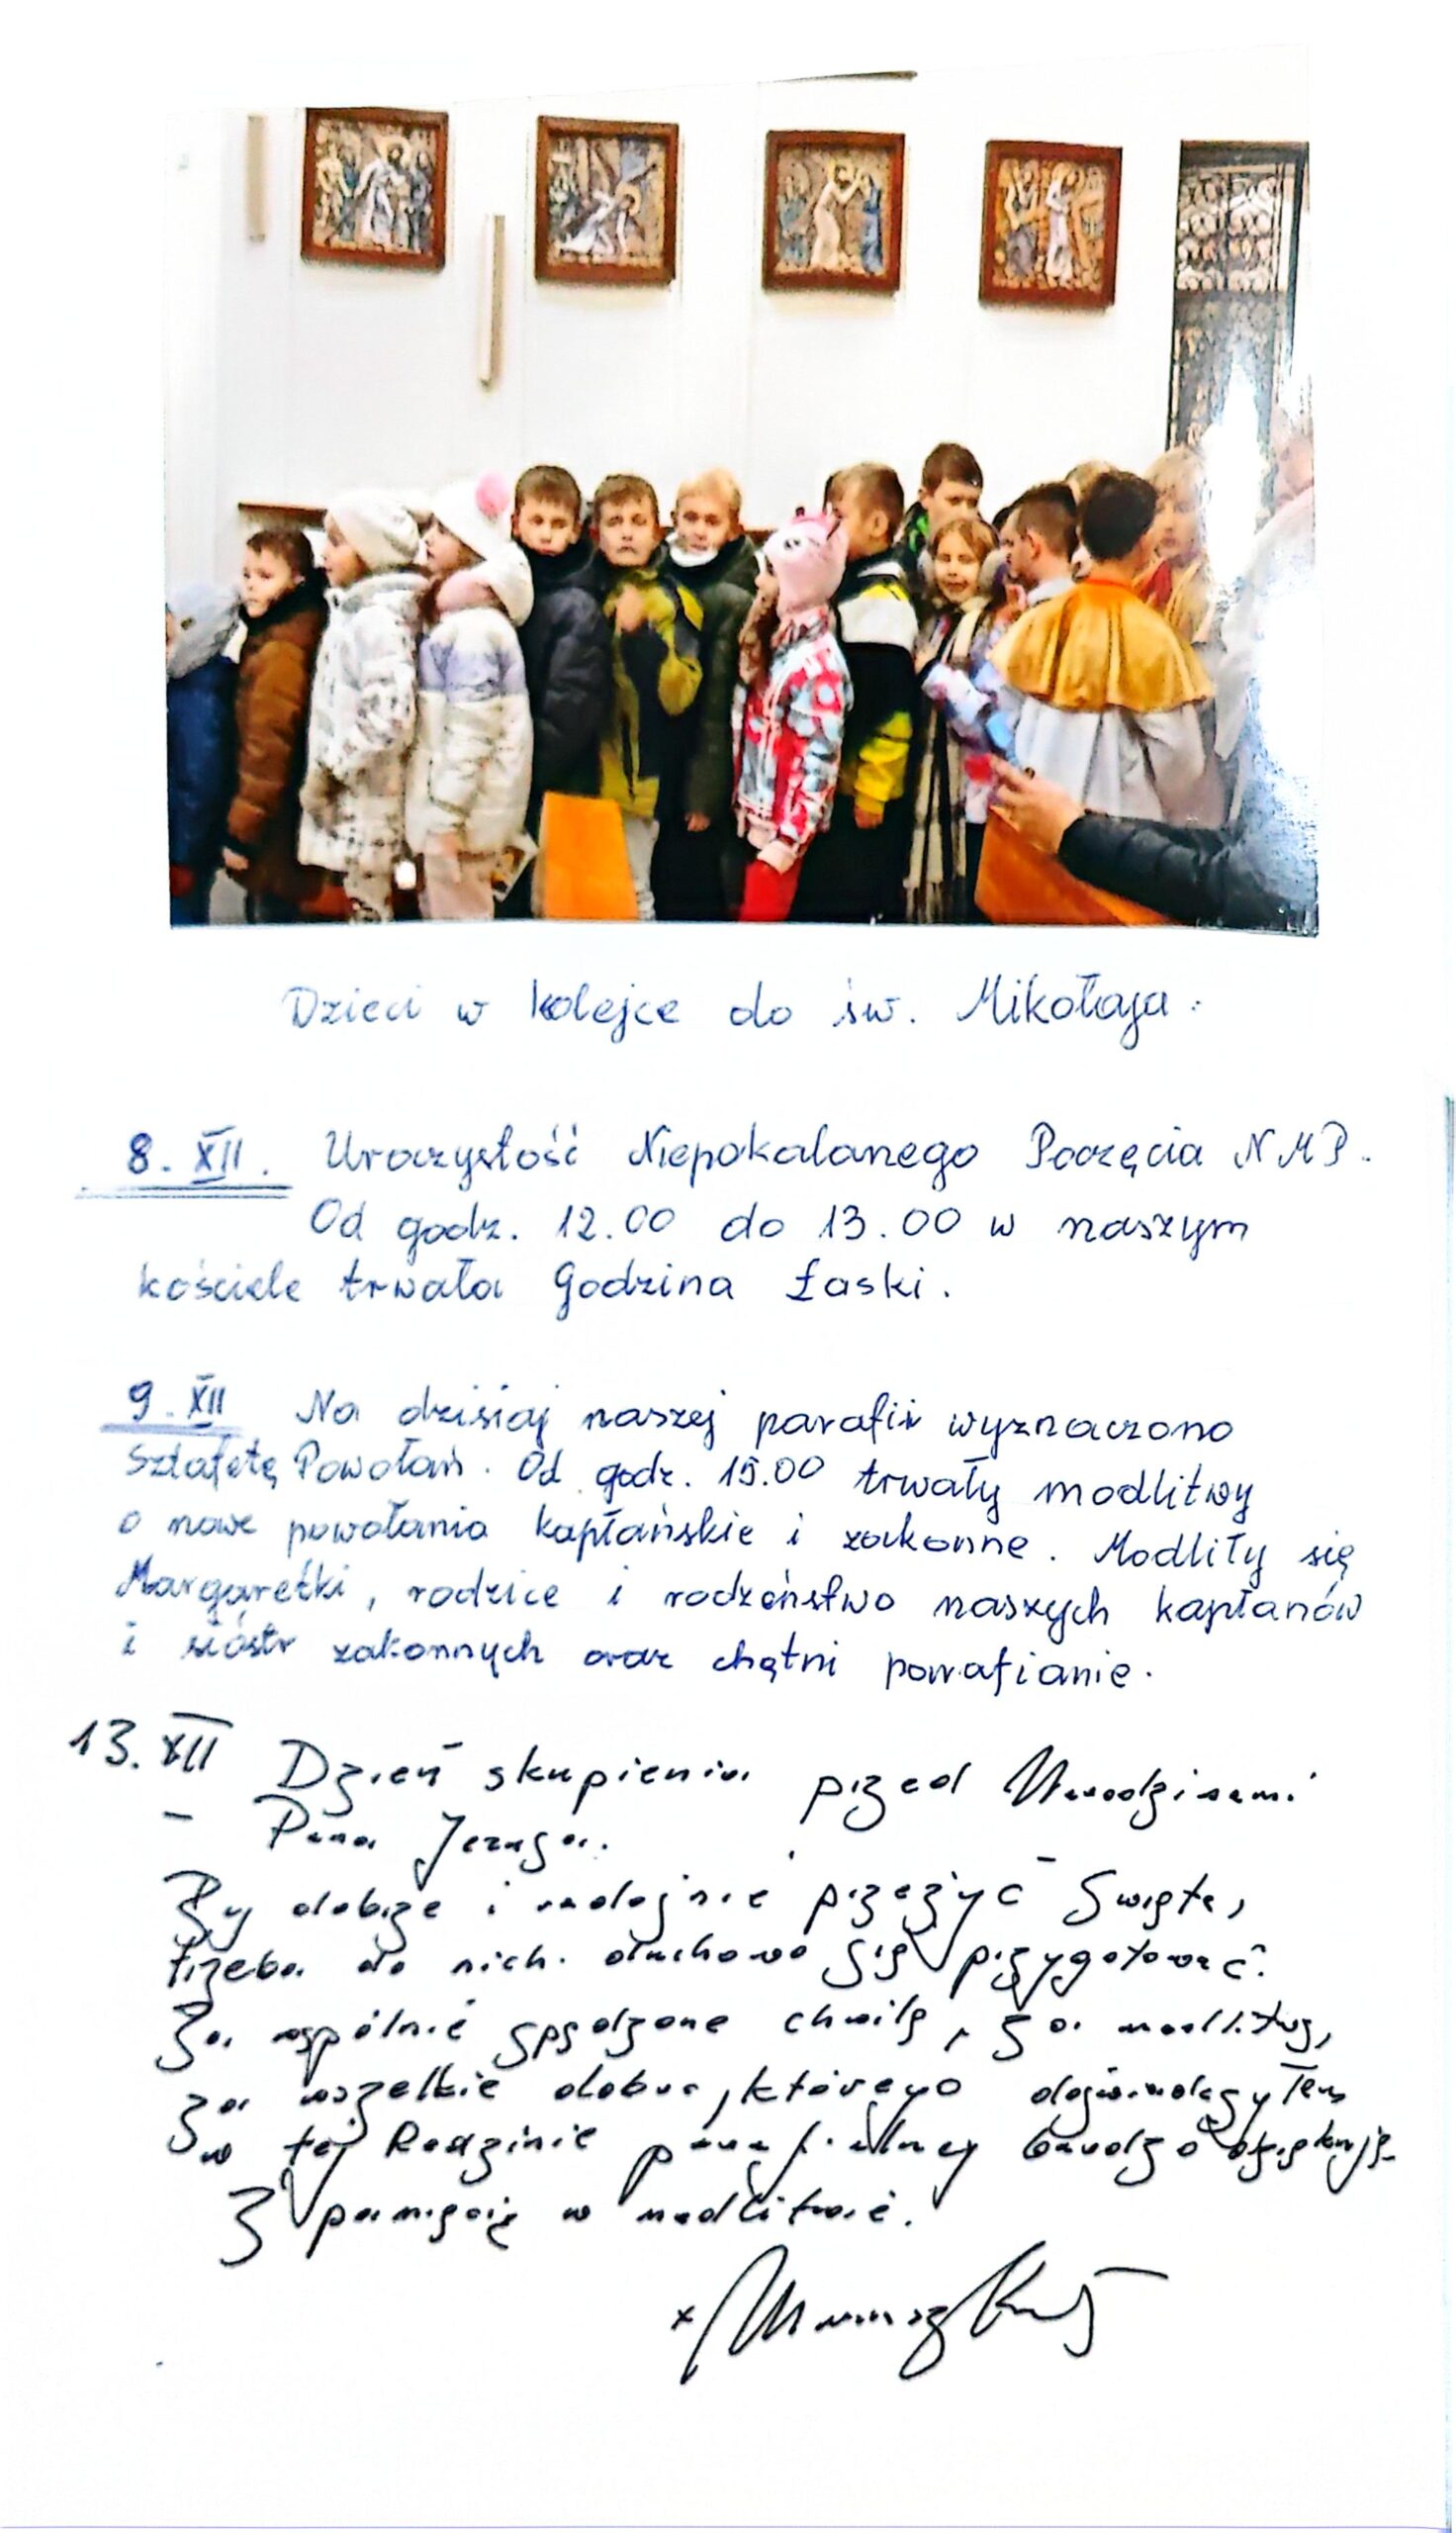 Dzieci w kolejce do św. Mikołaja.
8. XII. Uroczystość Niepokalanego Poczęcia NMP.
Od godz. 12.00 do 13.00 w naszym
kościele trwała Godzina Łaski.
9. XII Na dzisiaj naszej parafii wyznaczono
Sztafetę Powołań. Od godz. 15.00 trwały modlitwy
o nowe powołania kapłańskie i zakonne. Modliły się
Margaretki, rodzice i rodzeństwo naszych kapłanów
i sióstr zakonnych oraz chętni parafianie.
13. XII Dzień skupienia przed Narodzinami
- Pana Jezusa.
By dobrze i radośnie przeżyć Święta,
trzeba do nich duchowo się przygotować.
Za wspólnie spędzone chwile, za modlitwę,
za wszelkie dobro, którego doświadczyłem
w tej Rodzinie parafialnej bardzo dziękuję.
Z pamięcią w modlitwie.
x